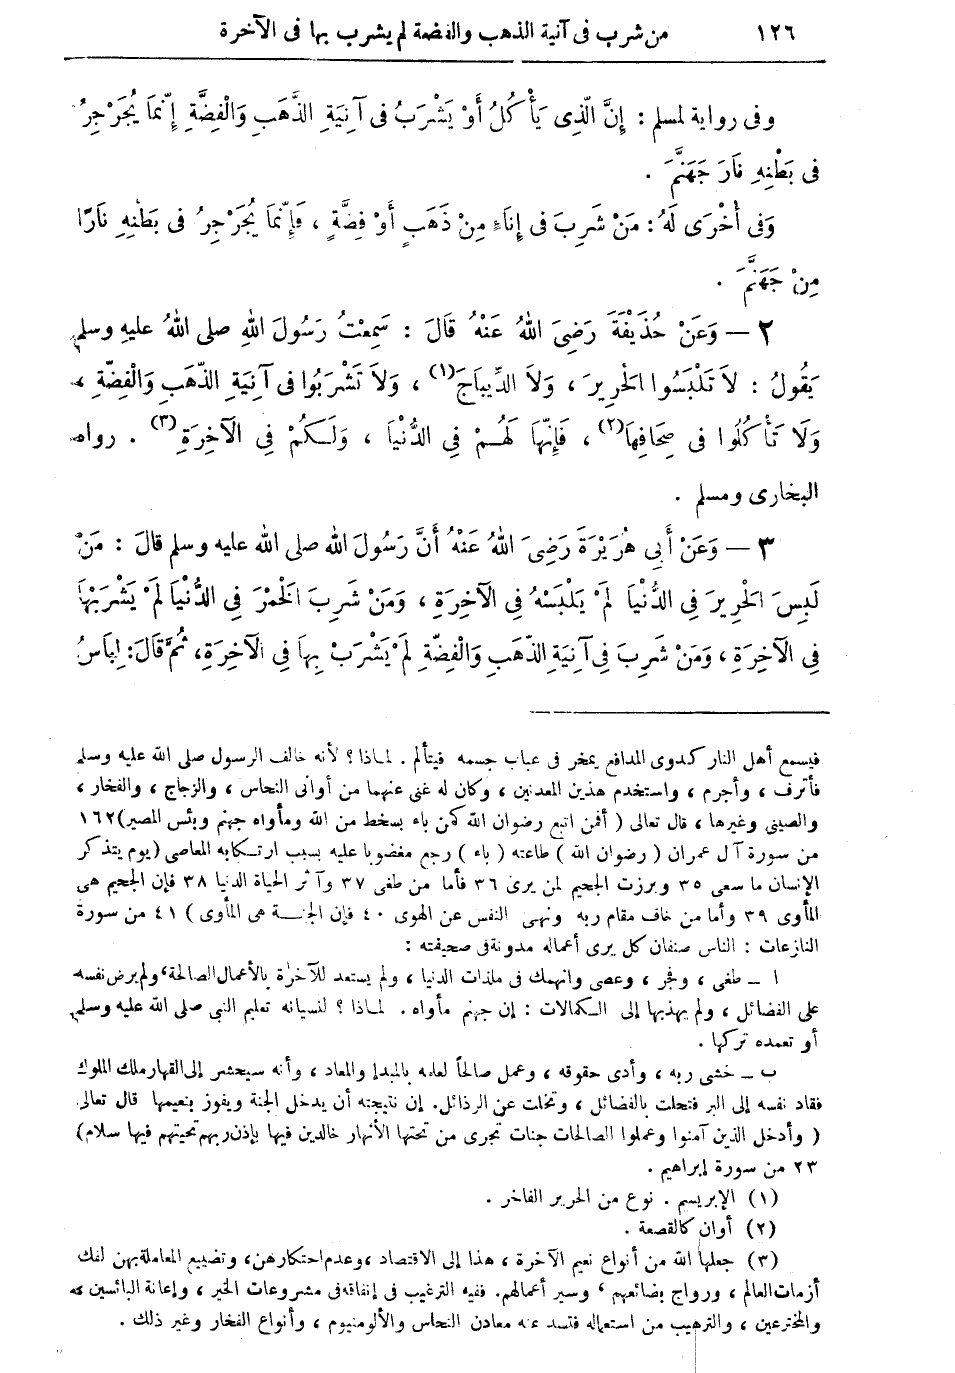 ١٢٦ من شرب فى آنية الذهب والفضة لم يشرب بها فى الآخرة
وفى رواية لمسلم : إِنَّ الَّذِى يَأْكُلُ أَوْ يَشْرَبُ فى آنِيَةِ الذَّهَبِ وَالْفِضَّةِ إِنَّمَا يُجَرْجِرُ
فى بَطْنِهِ نَارَ جَهَنَّمَ .
وَفى أُخْرَى لَهُ : مَنْ شَرِبَ فى إِنَاءٍ مِنْ ذَهَبٍ أَوْ فِضَّةٍ ، فَإِنَّمَا يُجَرْجِرُ فى بَطْنِهِ نَارًا
مِنْ جَهَنَّمَ .
٢ — وَعَنْ حُذَيْفَةَ رَضِىَ اللهُ عَنْهُ قَالَ : سَمِعْتُ رَسُولَ اللهِ صلى اللهُ عليهِ وسلم
يَقُولُ : لاَ تَلْبَسُوا الحَرِيرَ ، وَلاَ الدِّيبَاجَ(١) ، وَلاَ تَشْرَبُوا فى آنِيَةِ الذَّهَبِ وَالْفِضَّةِ ،
وَلاَ تَأْكُلُوا فى صِحَافِهَا(٢) ، فَإِنَّهَا لَهُمْ فِي الدُّنْيَا ، وَلَكُمْ فِي الآخِرَةِ(٣) . رواه
البخارى ومسلم .
٣ — وَعَنْ أَبِى هُرَيْرَةَ رَضِىَ اللهُ عَنْهُ أَنَّ رَسُولَ اللهِ صلى الله عليه وسلم قَالَ : مَنْ
لَبِسَ الحَرِيرَ فِي الدُّنْيَا لَمْ يَلْبَسْهُ فِي الآخِرَةِ ، وَمَنْ شَرِبَ الخَمْرَ فِي الدُّنْيَا لَمْ يَشْرَبْهَا
فِي الآخِرَةِ ، وَمَنْ شَرِبَ فِي آنِيَةِ الذَّهَبِ وَالْفِضَّةِ لَمْ يَشْرَبْ بِهَا فِي الآخِرَةِ ، ثُمَّ قَالَ : لِبَاسُ
فيسمع أهل النار كدوى المدافع يمخر فى عباب جسمه فيتألم . لماذا ؟ لأنه خالف الرسول صلى الله عليه وسلم
فأترف ، وأجرم ، واستخدم هذين المعدنين ، وكان له غنى عنهما من أوانى النحاس ، والزجاج ، والفخار ،
والصينى وغيرها ، قال تعالى ( أفمن اتبع رضوان الله كمن باء بسخط من الله ومأواه جهنم وبئس المصير) ١٦٢
من سورة آل عمران ( رضوان الله ) طاعته ( باء ) رجع مغضوبا عليه بسبب ارتكابه المعاصى (يوم يتذكر
الإنسان ما سعى ٣٥ وبرزت الجحيم لمن يرى ٣٦ فأما من طغى ٣٧ وآثر الحياة الدنيا ٣٨ فإن الجحيم هى
المأوى ٣٩ وأما من خاف مقام ربه ونهى النفس عن الهوى ٤٠ فإن الجنة هى المأوى ) ٤١ من سورة
النازعات : الناس صنفان كل يرى أعماله مدونة فى صحيفته :
ا — طغى ، وفجر ، وعصى وانهمك فى ملذات الدنيا ، ولم يستعد للآخرة بالأعمال الصالحة، ولم يرض نفسه
على الفضائل ، ولم يهذبها إلى الكمالات : إن جهنم مأواه . لماذا ؟ لنسيانه تعليم النبي صلى الله عليه وسلم،
أو تعمده تركها .
ب — خشى ربه ، وأدى حقوقه ، وعمل صالحاً لعلمه بالمبدإ والمعاد ، وأنه سيحشر إلى القهار ملك الملوك
فقاد نفسه إلى البر فتحلت بالفضائل ، وتخلت عن الرذائل. إن نتيجته أن يدخل الجنة ويفوز بنعيمها قال تعالى
( وأدخل الذين آمنوا وعملوا الصالحات جنات تجرى من تحتها الأنهار خالدين فيها بإذن ربهم تحيتهم فيها سلام)
٢٣ من سورة إبراهيم .
(١) الإبريسم . نوع من الحرير الفاخر .
(٢) أوان كالقصعة .
(٣) جعلها الله من أنواع نعيم الآخرة ، هذا إلى الاقتصاد ، وعدم احتكارهن، وتضييع المعاملة بهن لفك
أزمات العالم ، ورواج بضائعهم ، وسير أعمالهم. ففيه الترغيب فى إنفاقه فى مشروعات الخير ، وإعانة البائسين
والمخترعين ، والترهيب من استعماله فتسد عنه معادن النحاس والألومنيوم ، وأنواع الفخار وغير ذلك .